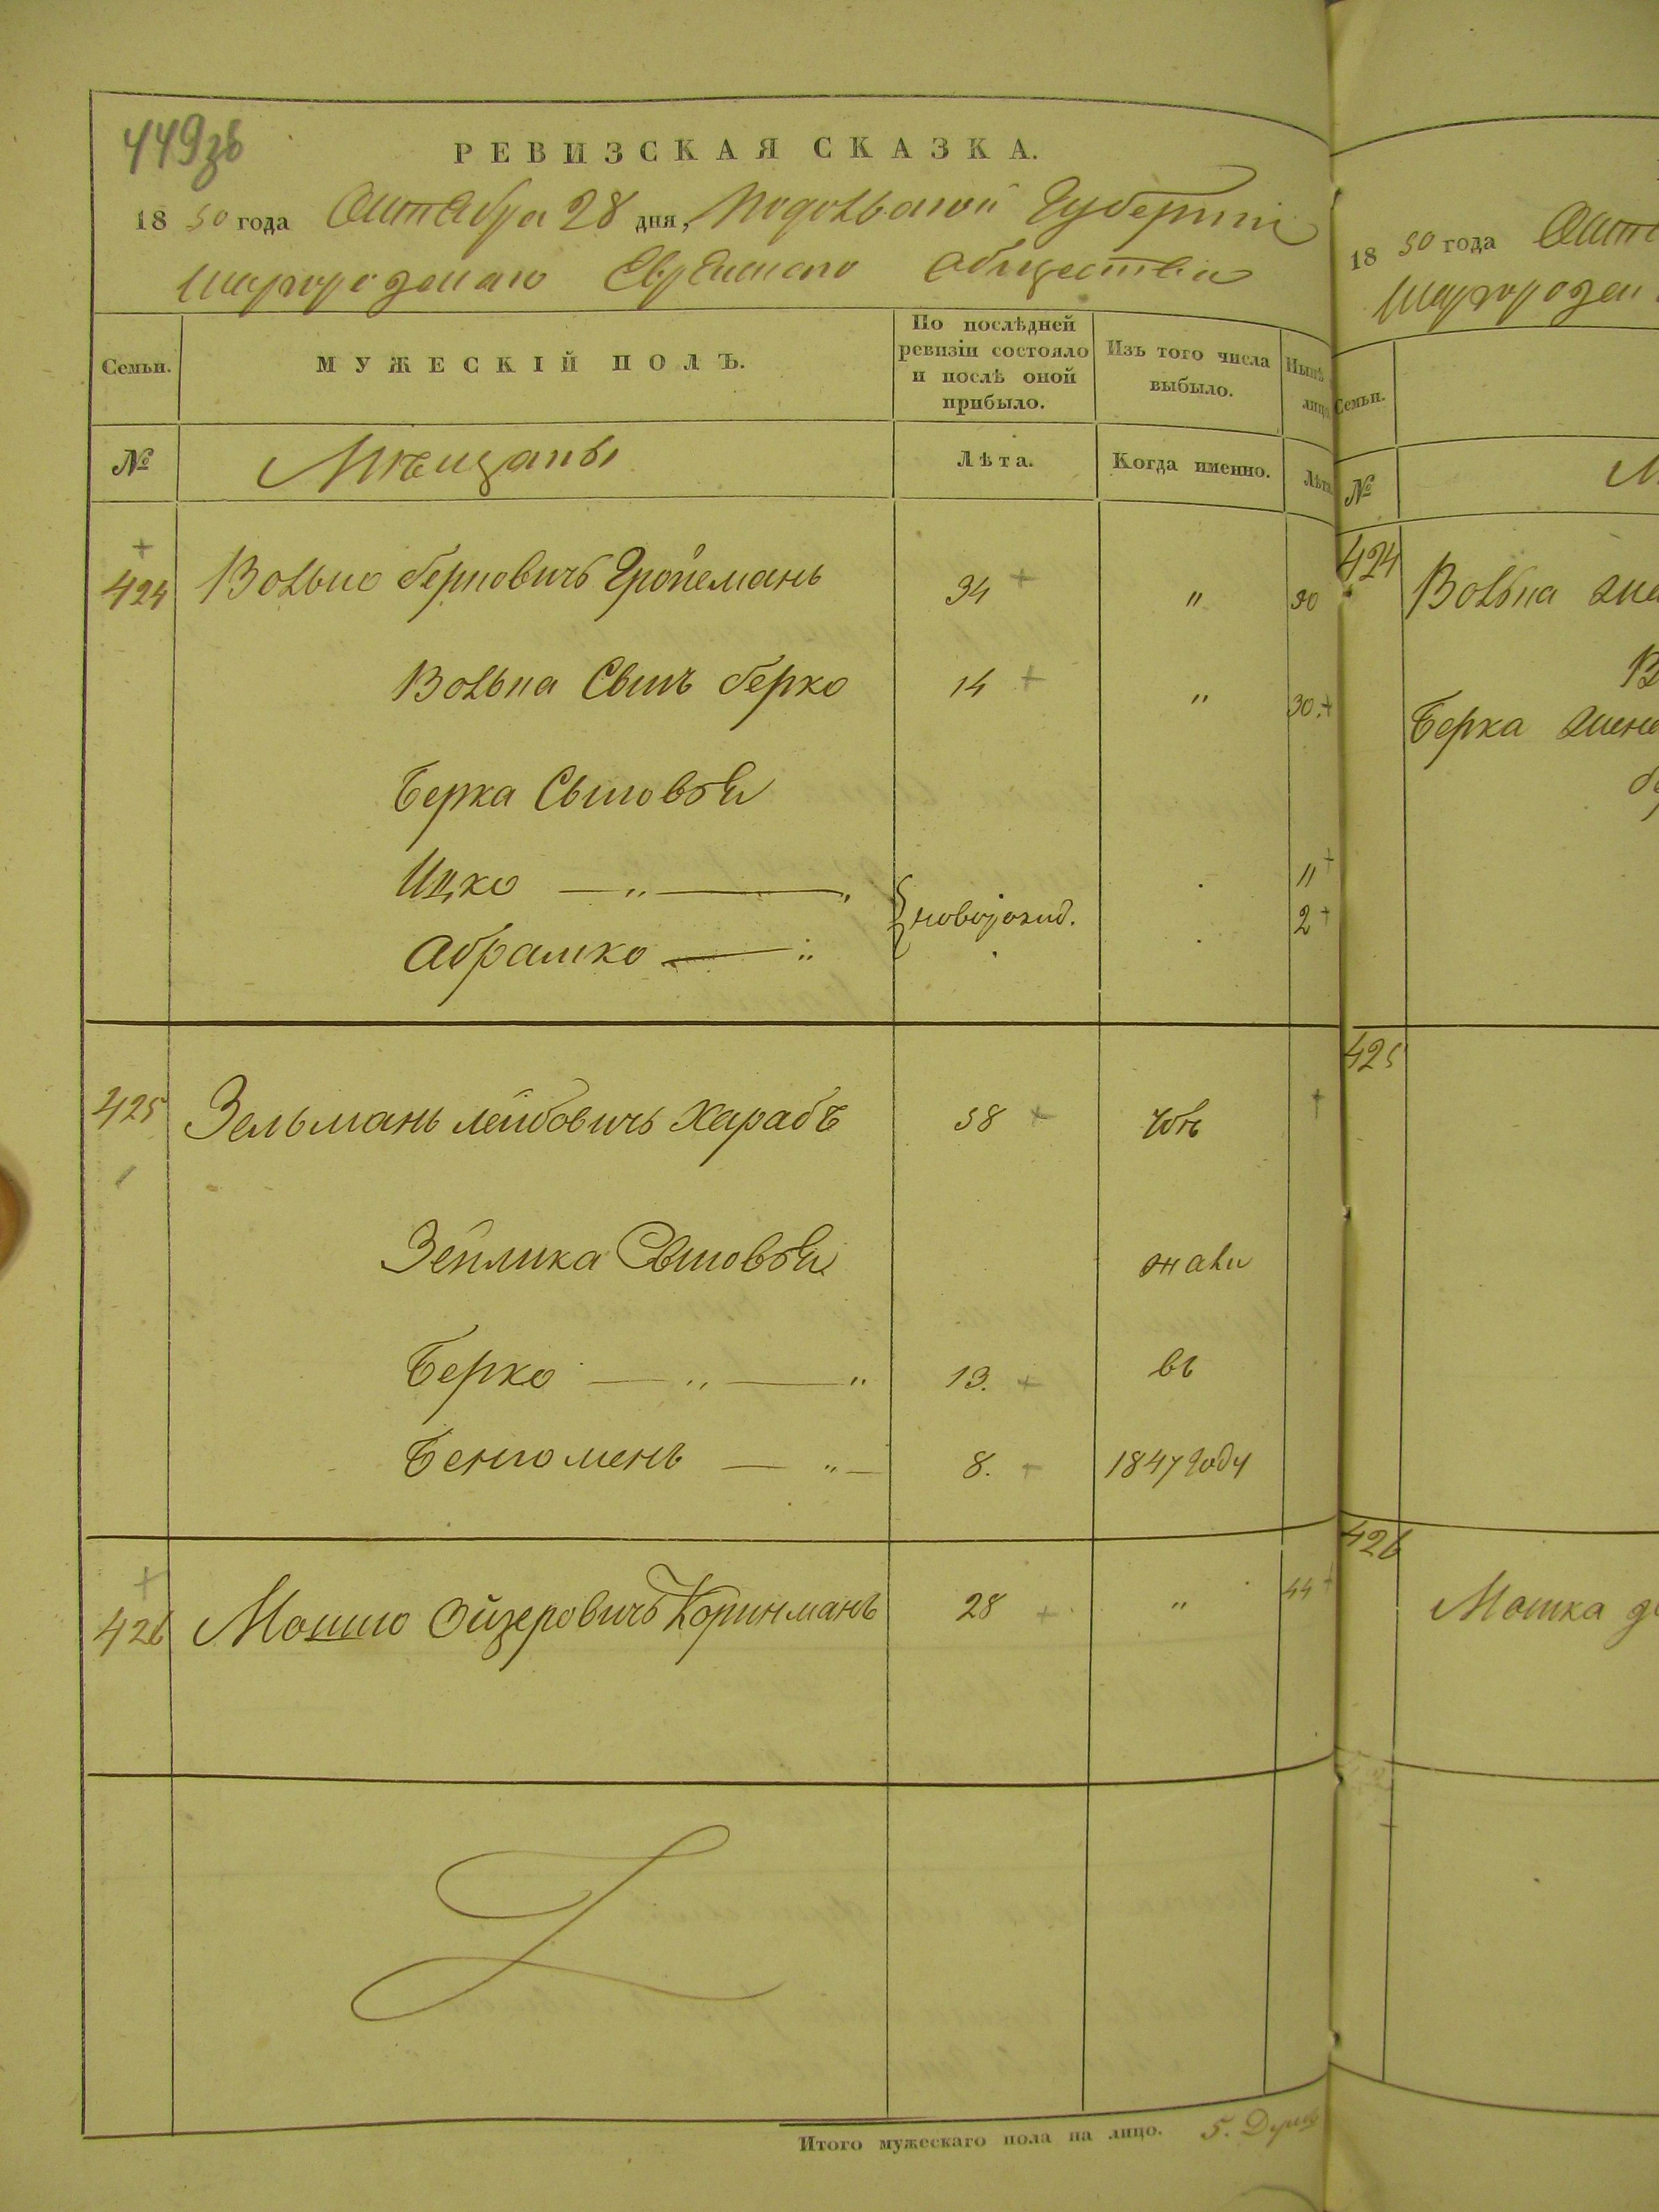 449зв
РЕВИЗСКАЯ СКАЗКА.
1850 года Октября 28 дня, Подольской Губерніи
Шаргородскаго Еврейскаго общества
Семьи.
МУЖЕСКІЙ ПОЛЪ.
По послѣдней
ревизіи состояло
и послѣ оной
прибыло.
Изъ того числа
выбыло.
Нынѣ
лицо
№
Мѣщаны
Лѣта.
Когда именно.
Лѣта
424 Волько Берковичъ 34 "
Волька Сынъ Берко 14 " 30.
Берка Сыновья
Ицко — " — " 11
новорожд.
Абрамко — " 2
425 Зельманъ Лейбовичъ Харабъ 38
Зейлика Сыновья
Берко — " — " 13. въ
8. 1847 году
426 Мошко Ойзеровичъ Коринманъ 28 " 44
Итого мужескаго пола на лицо. 5.
1850 года
Семьи.
№
424
Волька
Берка жена
425
426
Мошка